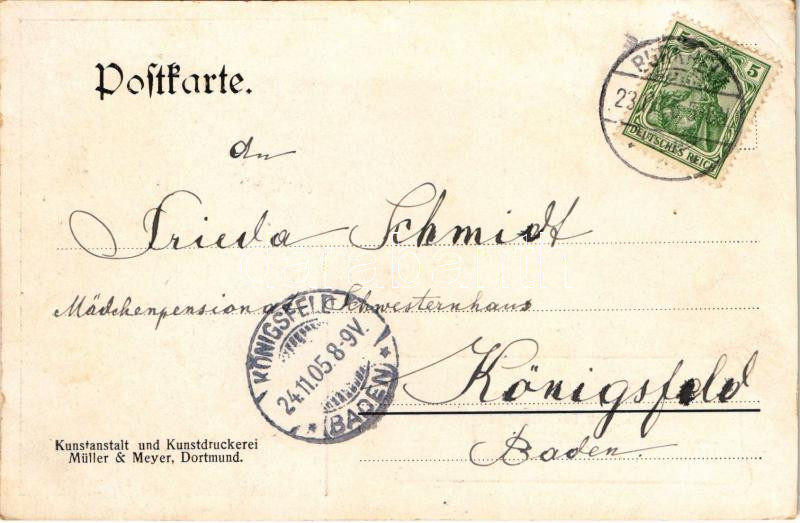 Postkarte.
5
23.
DEUTSCHES REICH
An
Frieda Schmidt
Mädchenpensionat Schwesternhaus
KÖNIGSFELD
24.11.05.8-9V.
* (BADEN) *
Königsfeld
Baden.
Kunstanstalt und Kunstdruckerei
Müller & Meyer, Dortmund.